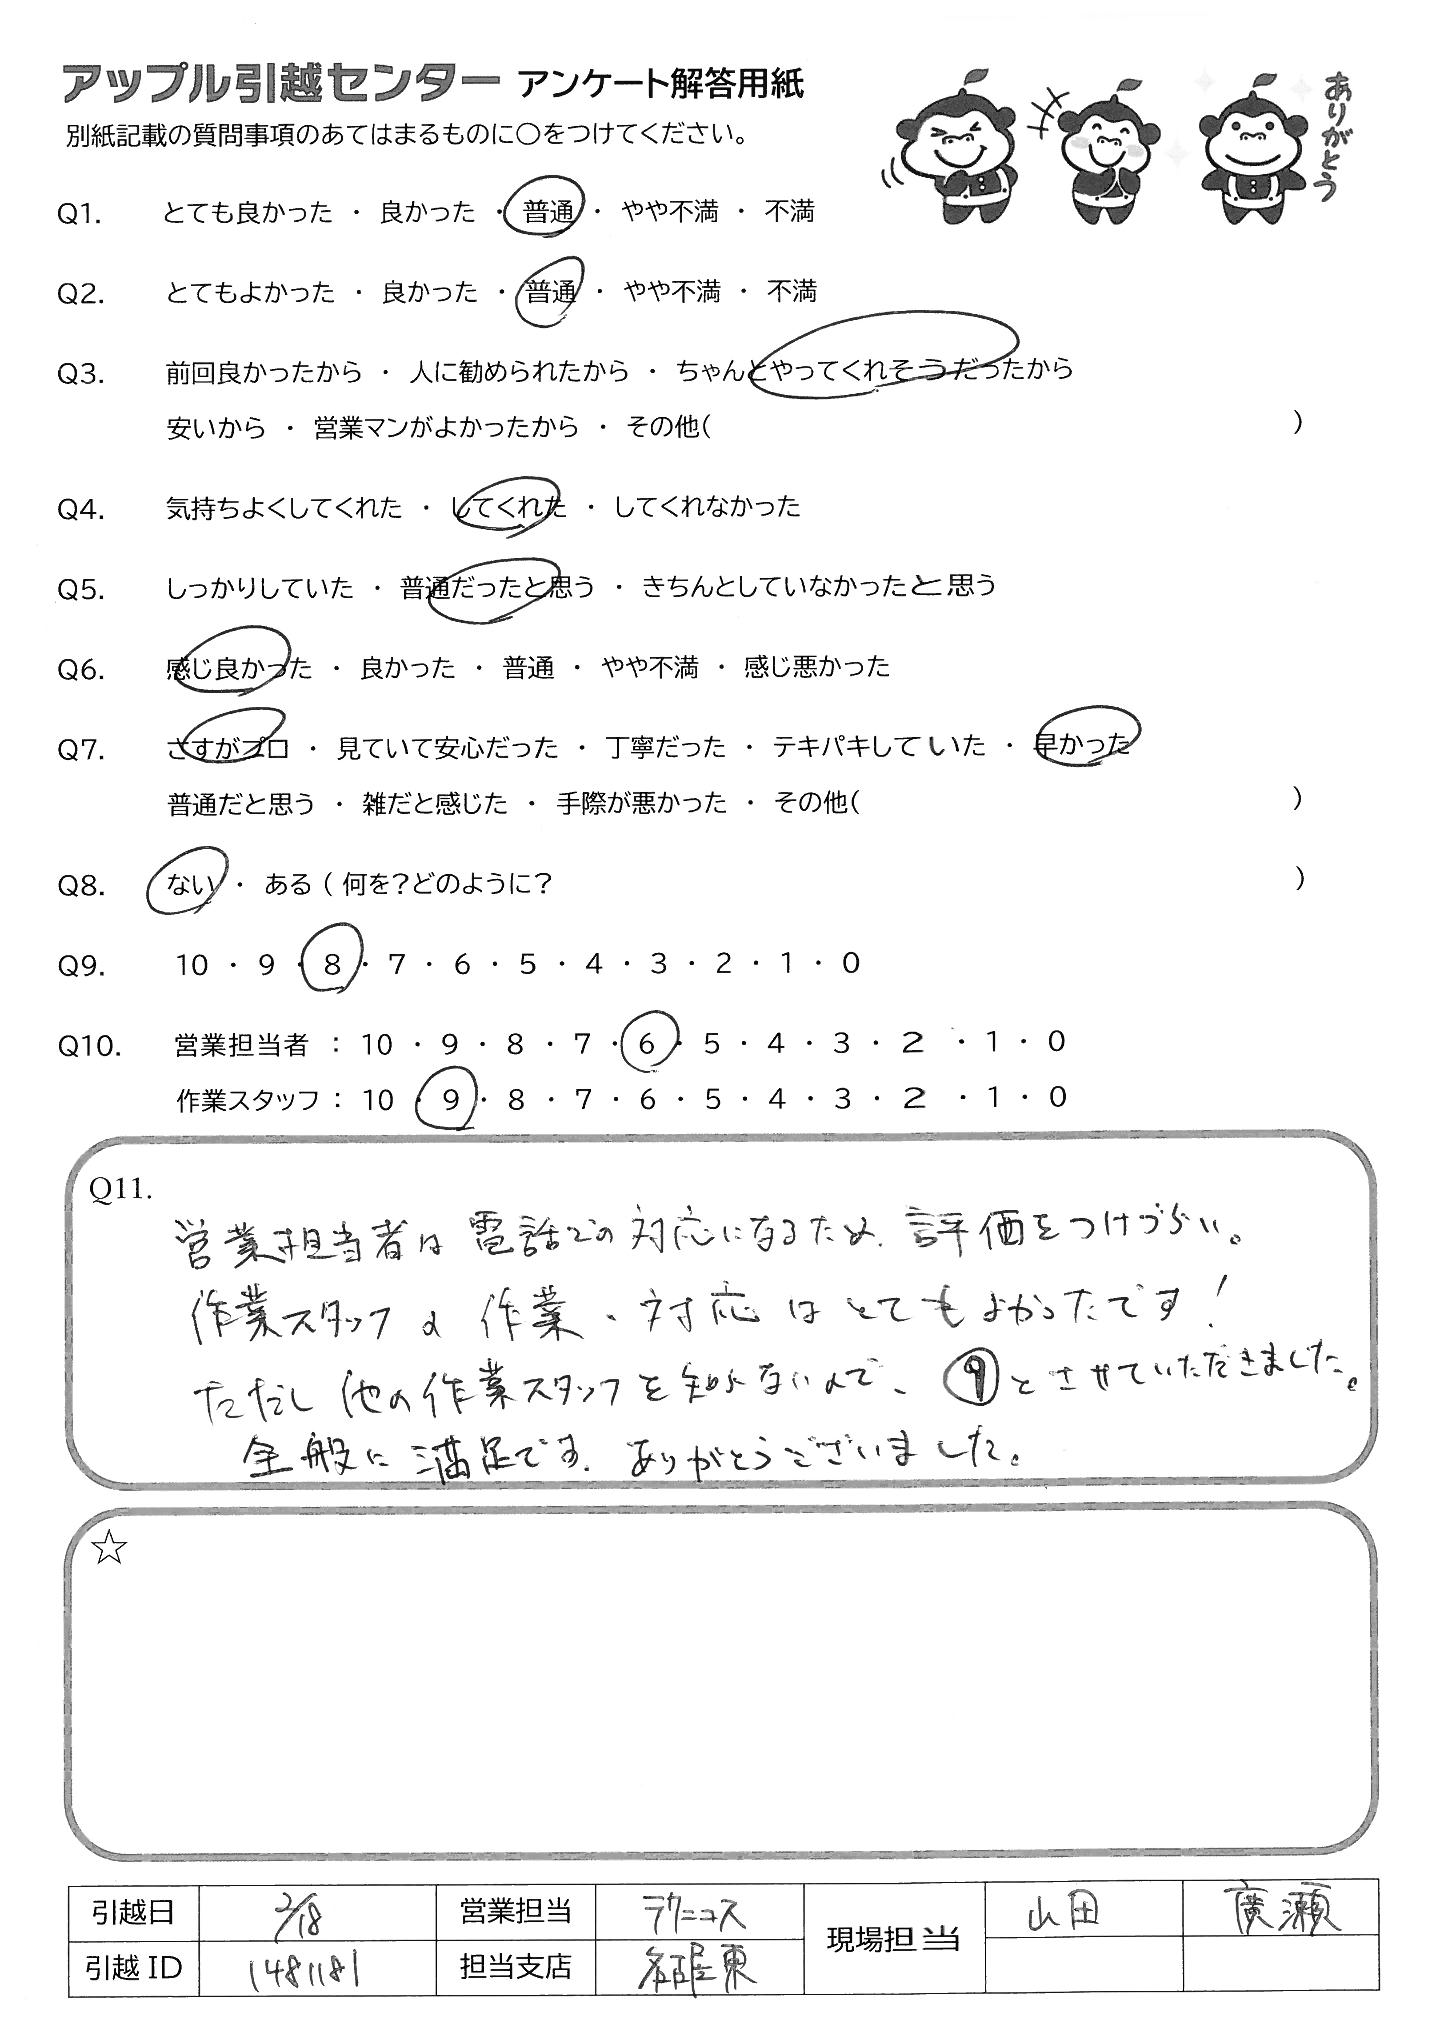 アップル引越センター アンケート解答用紙
別紙記載の質問事項のあてはまるものに〇をつけてください。
ありがとう
Q1. とても良かった ・ 良かった ・ 普通 ・ やや不満 ・ 不満
Q2. とてもよかった ・ 良かった ・ 普通 ・ やや不満 ・ 不満
Q3. 前回良かったから ・ 人に勧められたから ・ ちゃんとやってくれそうだったから
安いから ・ 営業マンがよかったから ・ その他( )
Q4. 気持ちよくしてくれた ・ してくれた ・ してくれなかった
Q5. しっかりしていた ・ 普通だったと思う ・ きちんとしていなかったと思う
Q6. 感じ良かった ・ 良かった ・ 普通 ・ やや不満 ・ 感じ悪かった
Q7. さすがプロ ・ 見ていて安心だった ・ 丁寧だった ・ テキパキしていた ・ 早かった
普通だと思う ・ 雑だと感じた ・ 手際が悪かった ・ その他( )
Q8. ない ・ ある ( 何を?どのように? )
Q9. 10 ・ 9 ・ 8 ・ 7 ・ 6 ・ 5 ・ 4 ・ 3 ・ 2 ・ 1 ・ 0
Q10. 営業担当者 : 10 ・ 9 ・ 8 ・ 7 ・ 6 ・ 5 ・ 4 ・ 3 ・ 2 ・ 1 ・ 0
作業スタッフ : 10 ・ 9 ・ 8 ・ 7 ・ 6 ・ 5 ・ 4 ・ 3 ・ 2 ・ 1 ・ 0
Q11.
営業担当者は電話での対応になるため、評価をつけづらい。
作業スタッフの作業・対応はとてもよかったです!
ただし他の作業スタッフを知らないので、⑨とさせていただきました。
全般に満足です。ありがとうございました。
☆
引越日 2/18 営業担当 テクニコス 現場担当 山田 廣瀬
引越ID 1481181 担当支店 名古屋東